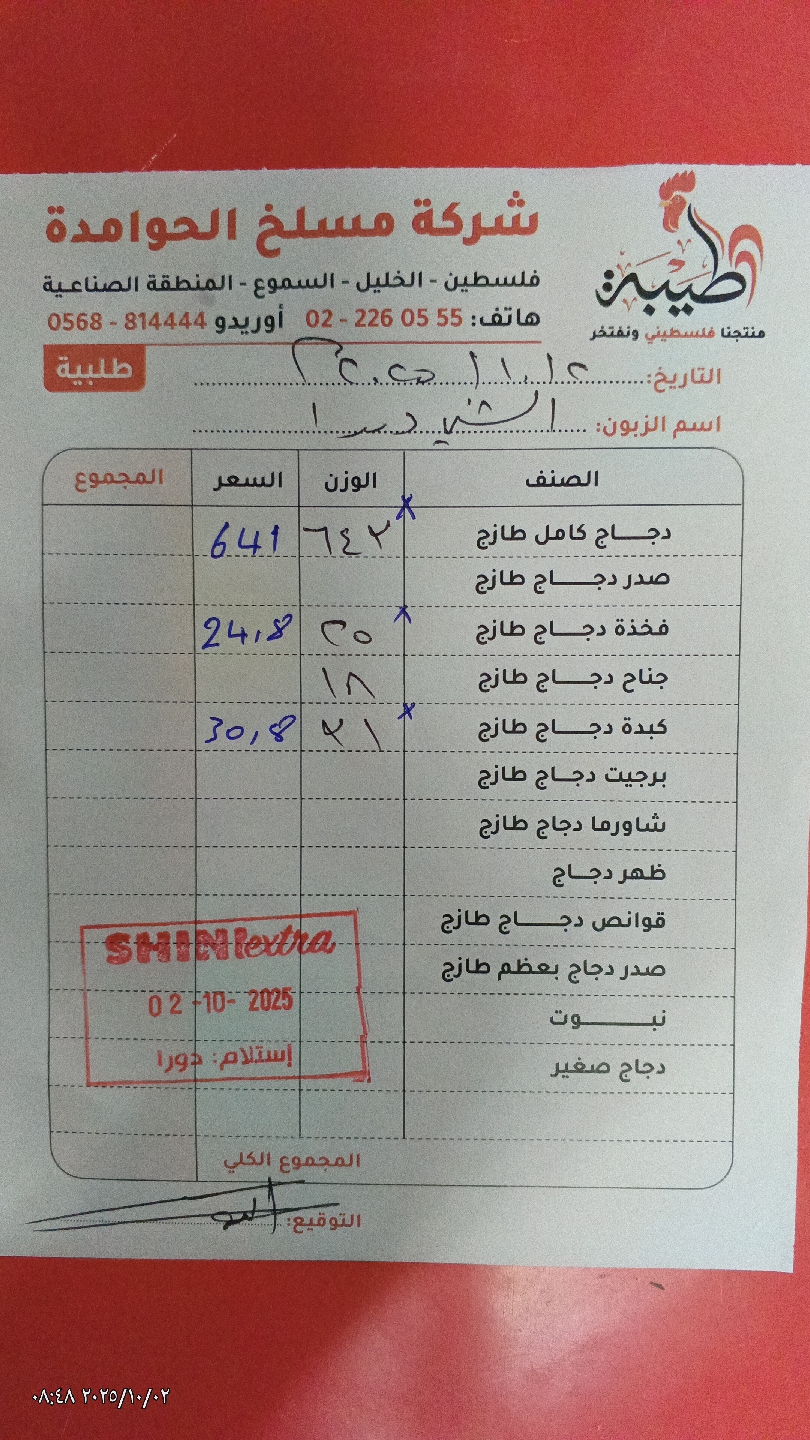 شركة مسلخ الحوامدة
طيبة
فلسطين - الخليل - السموع - المنطقة الصناعية
هاتف: 02 - 226 05 55 أوريدو 0568 - 814444
منتجنا فلسطيني ونفتخر
طلبية
التاريخ:
اسم الزبون:
الصنف الوزن السعر المجموع
دجاج كامل طازج ٦٤٢ 641
صدر دجاج طازج
فخذة دجاج طازج ٢٥ 24,8
جناح دجاج طازج ١٨
كبدة دجاج طازج ٢١ 30,8
برجيت دجاج طازج
شاورما دجاج طازج
ظهر دجاج
قوانص دجاج طازج
صدر دجاج بعظم طازج
نبوت
دجاج صغير
SHINI extra
02-10-2025
إستلام: دورا
المجموع الكلي
التوقيع:
٠٨:٤٨ ٢٠٢٥/١٠/٠٢